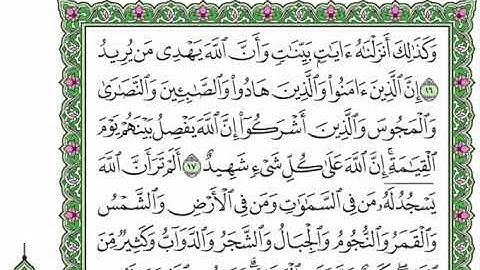 وَكَذَٰلِكَ أَنزَلْنَٰهُ ءَايَٰتٍۭ بَيِّنَٰتٍ وَأَنَّ ٱللَّهَ يَهْدِى مَن يُرِيدُ
١٦ إِنَّ ٱلَّذِينَ ءَامَنُوا۟ وَٱلَّذِينَ هَادُوا۟ وَٱلصَّٰبِـِٔينَ وَٱلنَّصَٰرَىٰ
وَٱلْمَجُوسَ وَٱلَّذِينَ أَشْرَكُوٓا۟ إِنَّ ٱللَّهَ يَفْصِلُ بَيْنَهُمْ يَوْمَ
ٱلْقِيَٰمَةِ ۚ إِنَّ ٱللَّهَ عَلَىٰ كُلِّ شَىْءٍ شَهِيدٌ ١٧ أَلَمْ تَرَ أَنَّ ٱللَّهَ
يَسْجُدُ لَهُۥ مَن فِى ٱلسَّمَٰوَٰتِ وَمَن فِى ٱلْأَرْضِ وَٱلشَّمْسُ
وَٱلْقَمَرُ وَٱلنُّجُومُ وَٱلْجِبَالُ وَٱلشَّجَرُ وَٱلدَّوَآبُّ وَكَثِيرٌ مِّنَ